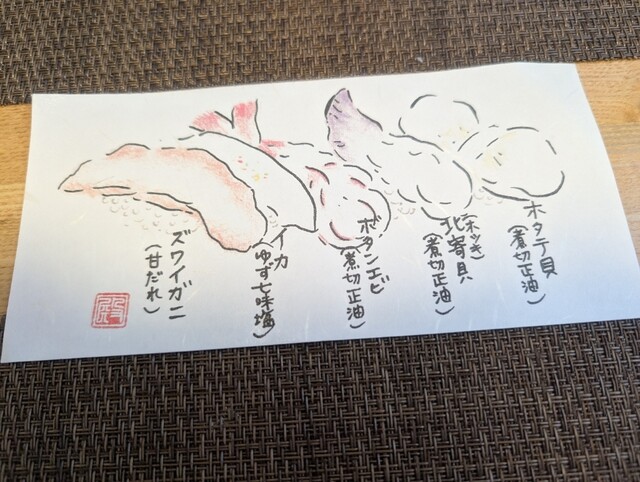 ホタテ貝
(煮切正油)
(ホッキ)
北寄貝
(煮切正油)
ボタンエビ
(煮切正油)
イカ
ゆず七味塩)
ズワイガニ
(甘だれ)